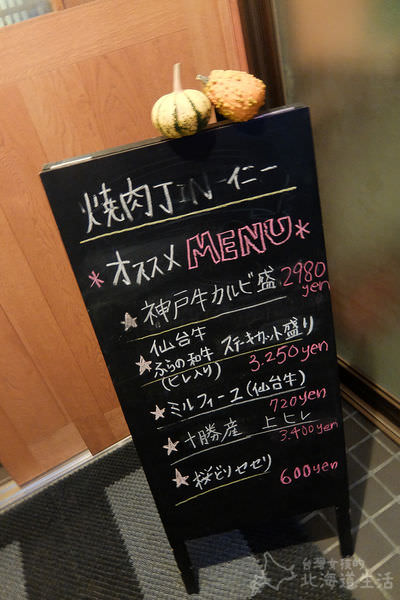 焼肉JIN-仁-
*オススメ MENU*
神戸牛カルビ盛 2980yen
仙台牛
ふらの和牛 ステーキカット盛り
(ヒレ入り) 3.250yen
ミルフィーユ(仙台牛)
720yen
十勝産 上ヒレ
3.400yen
桜どりセセリ
600yen
台灣女孩的
北海道生活